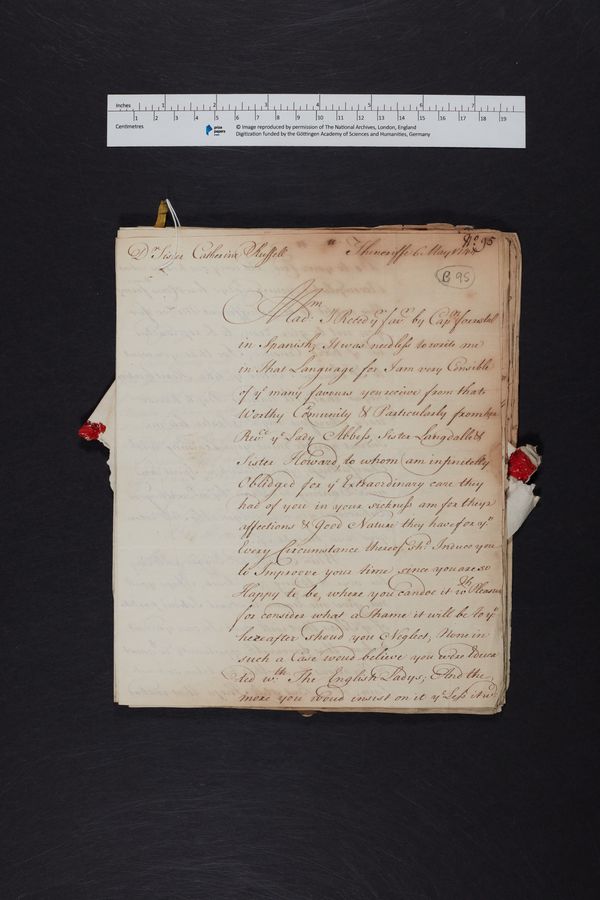 Inches 1 2 3 4 5 6 7
1 2 3 4 5 6 7 8 9 10 11 12 13 14 15 16 17 18 19
Centimetres
prize papers
© Image reproduced by permission of The National Archives, London, England
Digitization funded by the Göttingen Academy of Sciences and Humanities, Germany
No 95
Dr Sister Catherine Russell Theneriffe 6 May
B 95
Madm
I Reced yr favr by Capn forrestal
in Spanish, It was needless to write me
in that Language for I am very Consible
of ye many favours you receive from that
Worthy Comunity & Particularly from her
Revd ye Lady Abbess, Sister Langdalle &
Sister Howard, to whom I am infinitelly
Obledged for ye Extraordinary care they
had of you in your sickness am for theyr
affections & Good Nature they have for yu
Every Circumstance thereof shd Induce you
to Improove your time since you are so
Happy to be, where you can doe it wth Pleasure
for consider what a Shame it will be to yu
hereafter shoud you Neglect, None in
such a Case woud believe you were Educa
ted wth The English Ladys; And the
more you woud insist on it ye Less it